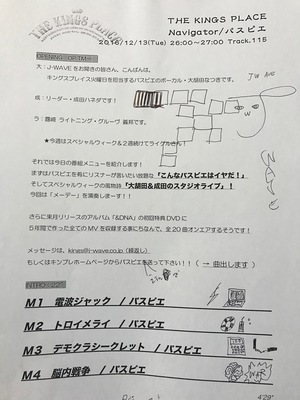 THE KINGS PLACE
THE KINGS PLACE
Navigator/パスピエ
2016/12/13(Tue) 26:00～27:00 Track.115
JW AVE
大：J-WAVEをお聞きの皆さま、こんばんは。
キングスプレイス火曜日を担当するパスピエのボーカル・大胡田なつきです。
咲：リーダー・成田ハネダです！
ラ：露崎 ライトニング・グルーヴ 義邦です。
★今週はスペシャルウィーク＆2週続けてライゲルさん！
それでは今日の番組メニューを紹介します！
まずはパスピエを肴にリスナーが言いたい放題な「こんなパスピエはイヤだ！」
そしてスペシャルウィークの風物詩“大胡田＆成田のスタジオライブ”！
今回は「メーデー」を演奏しまーす！！
さらに来月リリースのアルバム「&DNA」の初回特典DVDに
5年間で作った全てのMVを収録する事にちなんで、全20曲オンエアするそうです！
メッセージは、kings@j-wave.co.jp（繰返し）
もしくはキンプレホームページからパスピエを送って下さい！！（ → 曲出します ）
M1 電波ジャック / パスピエ
M2 トロイメライ / パスピエ
M3 デモクラシークレット / パスピエ
M4 脳内戦争 / パスピエ
4'29"